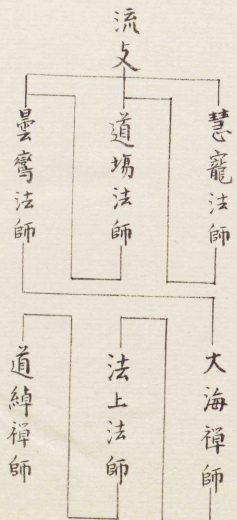 流支
慧寵法師
道場法師
曇鸞法師
大海禅師
法上法師
道綽禅師